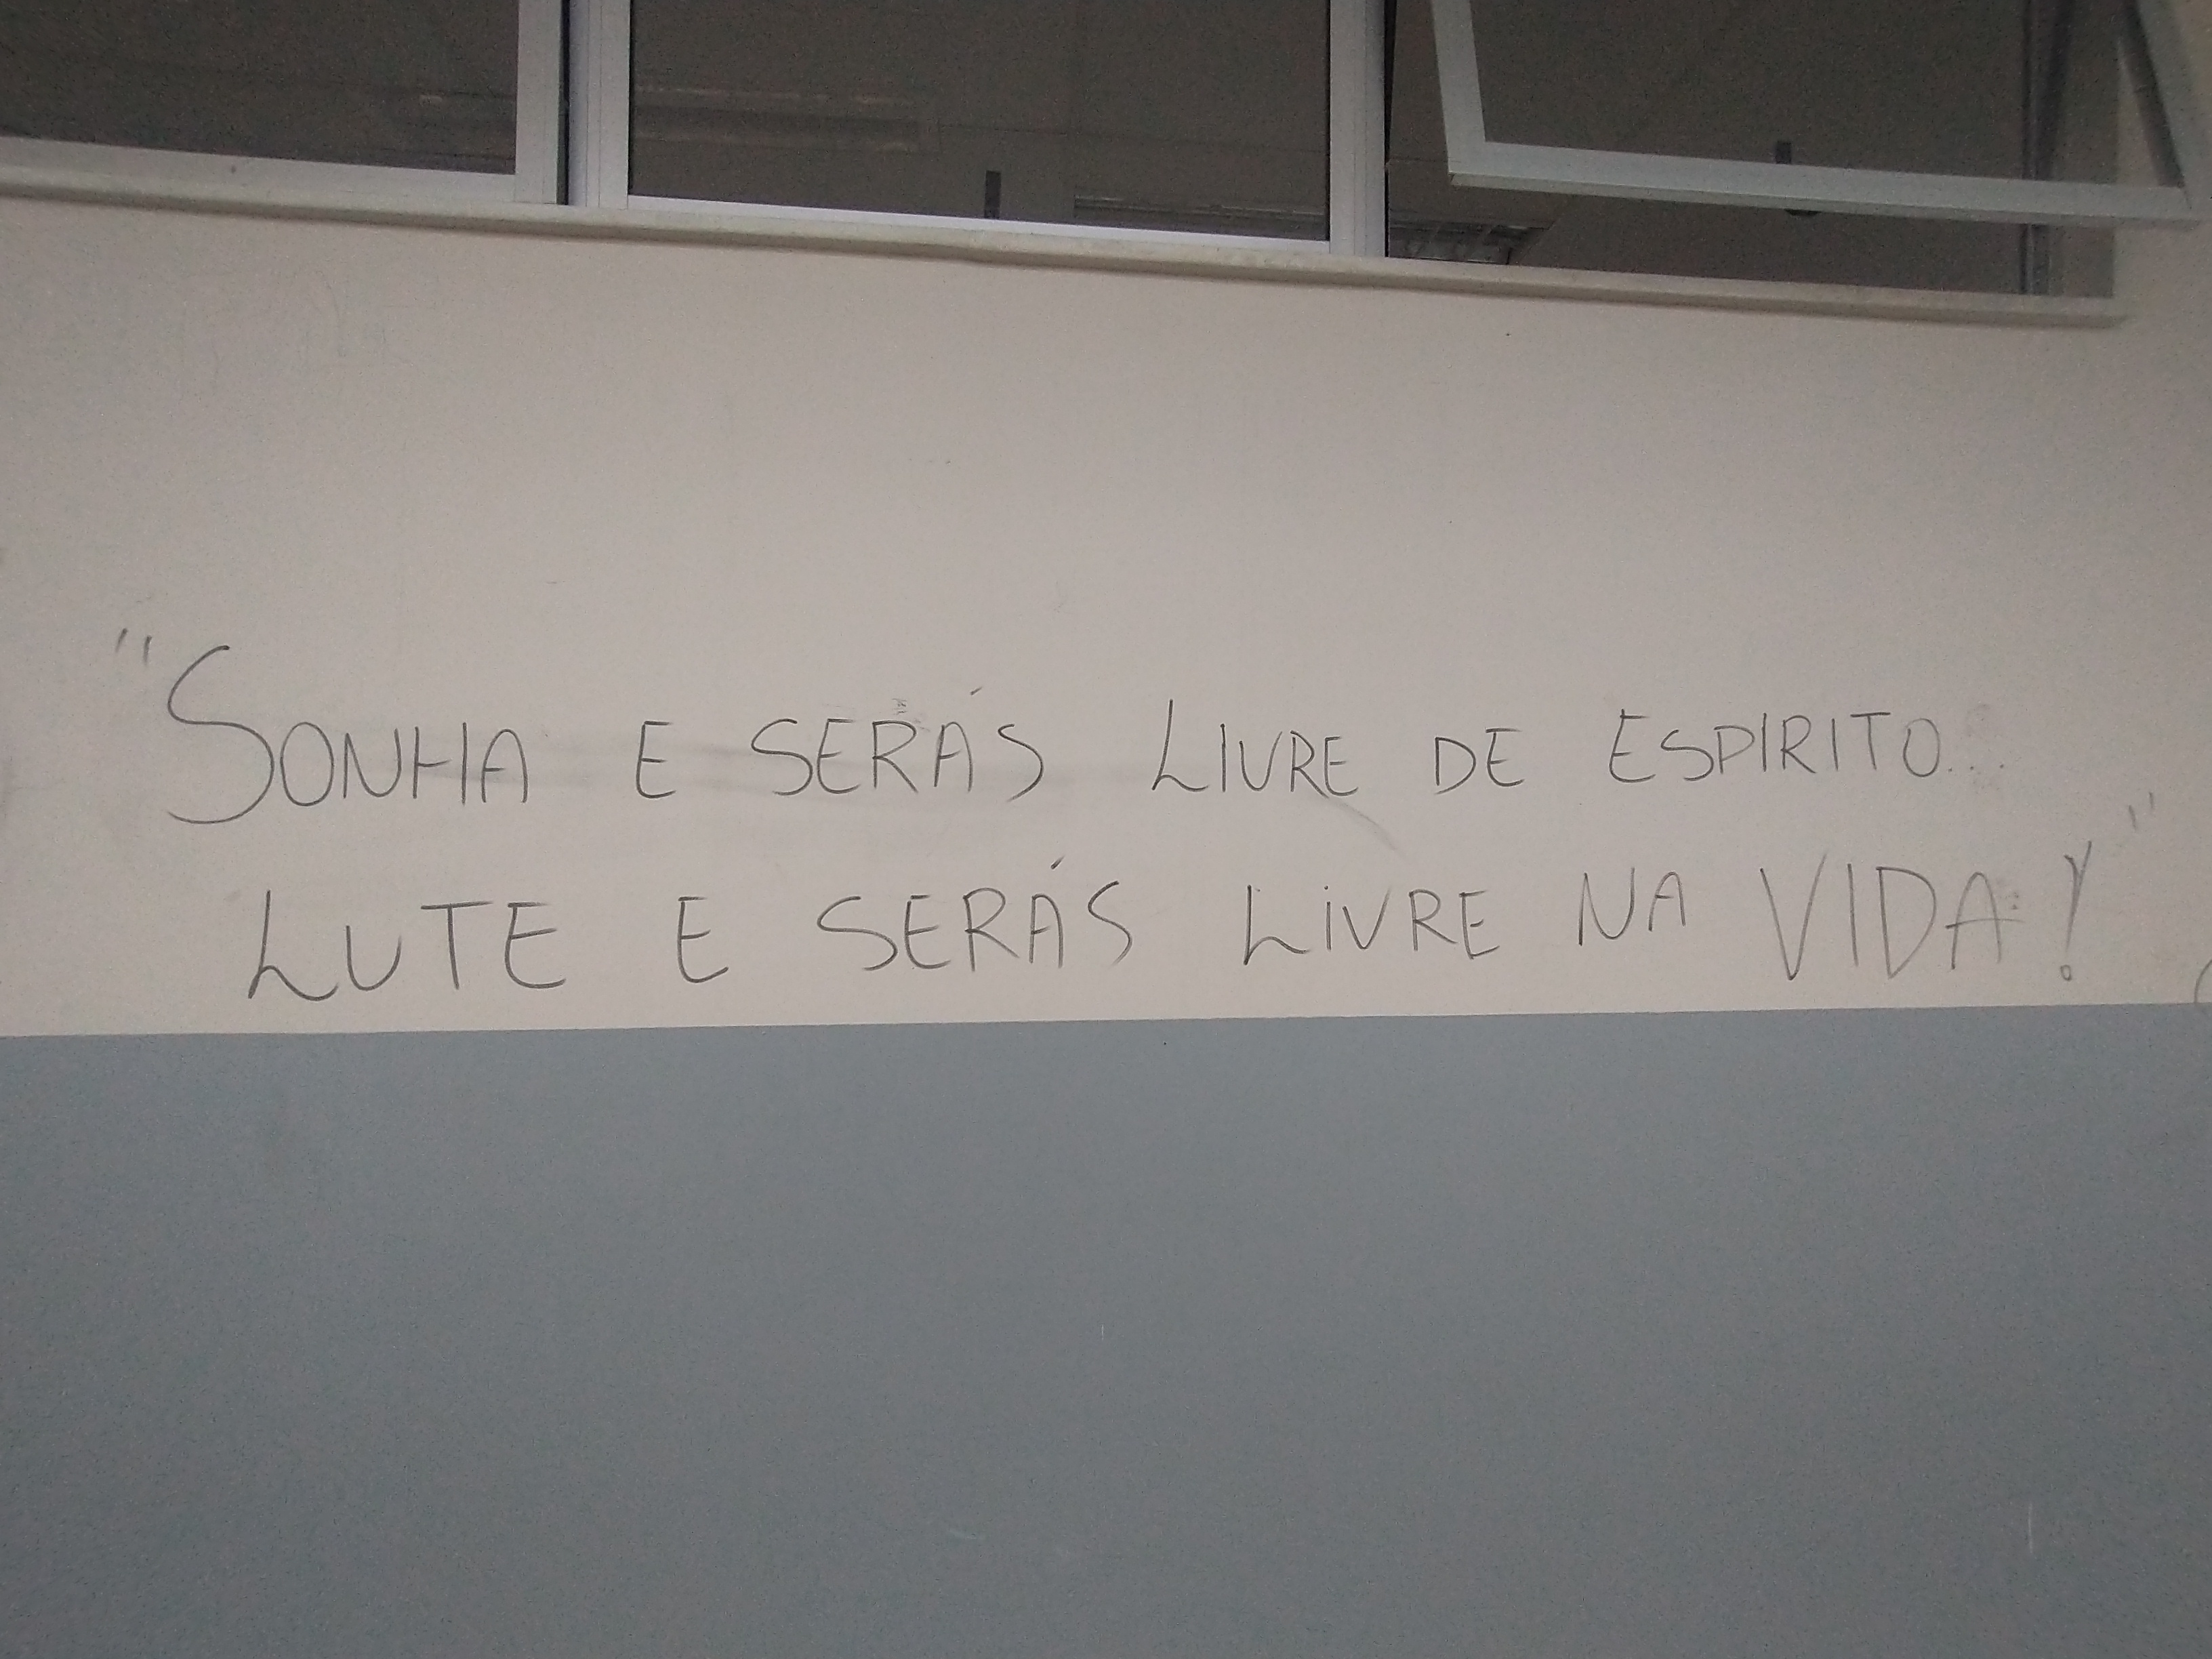 "SONHA E SERÁS LIVRE DE ESPIRITO...
LUTE E SERÁS LIVRE NA VIDA!"